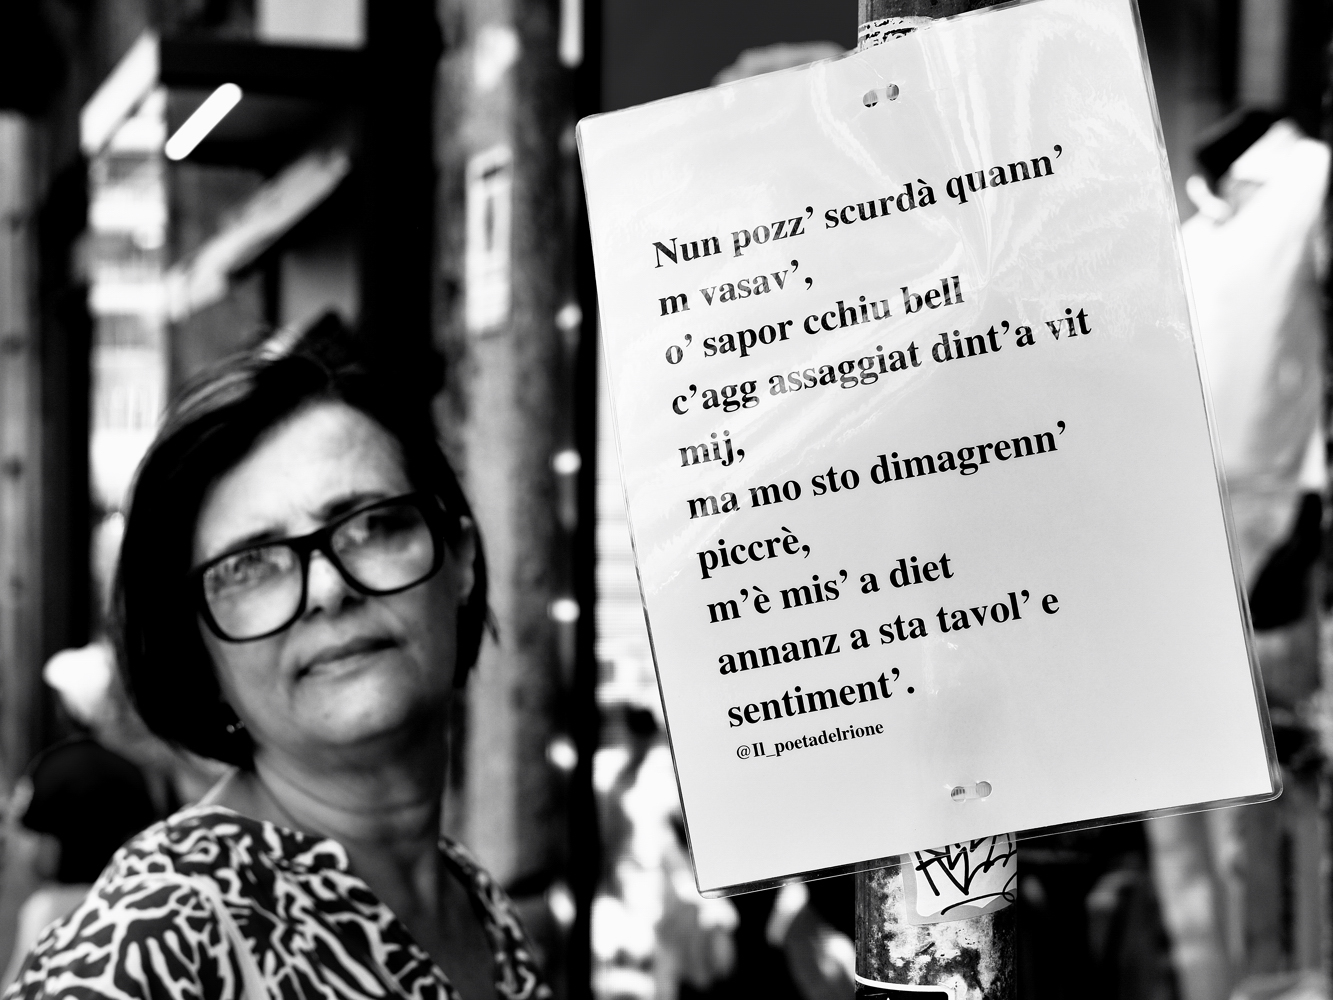 Nun pozz’ scurdà quann’
m vasav’,
o’ sapor cchiu bell
c’agg assaggiat dint’a vit
mij,
ma mo sto dimagrenn’
piccrè,
m’è mis’ a diet
annanz a sta tavol’ e
sentiment’.
@Il_poetadelrione